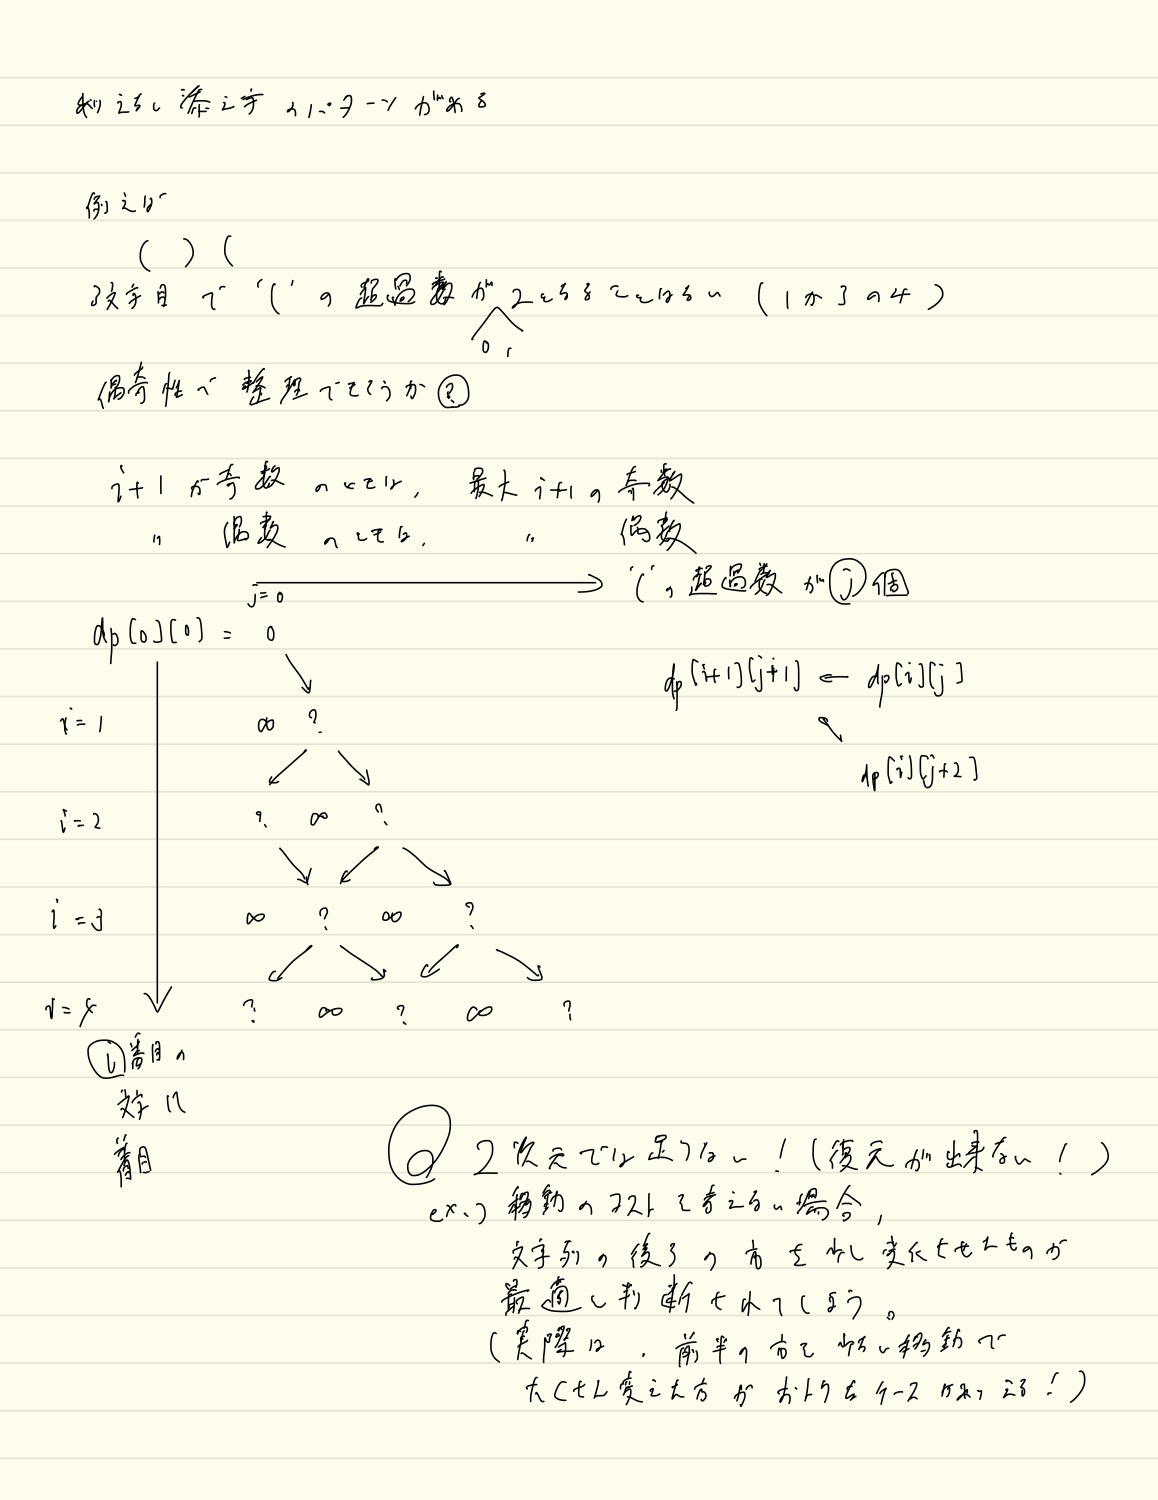 ありえない添え字のパターンがある
例えば
( ) (
3文字目で '(' の超過数が2となることはない (1か3のみ)
0 1
偶奇性で整理できそうか?
i+1が奇数のときは, 最大i+1の奇数
〃 偶数のときは, 〃 偶数
j=0 '('の超過数がj個
dp[0][0] = 0
dp[i+1][j+1] ← dp[i][j]
i=1 ∞ ?
dp[i][j+2]
i=2 ? ∞ ?
i=3 ∞ ? ∞ ?
i=4 ? ∞ ? ∞ ?
i番目の
文字に
着目
Q 2次元では足りない!(復元が出来ない!)
ex.) 移動のコストを考えない場合,
文字列の後ろの方を少し変化させたものが
最適と判断されてしまう。
(実際は、前半の方を少ない移動で
たくさん変えた方がおトクなケースがありえる!)